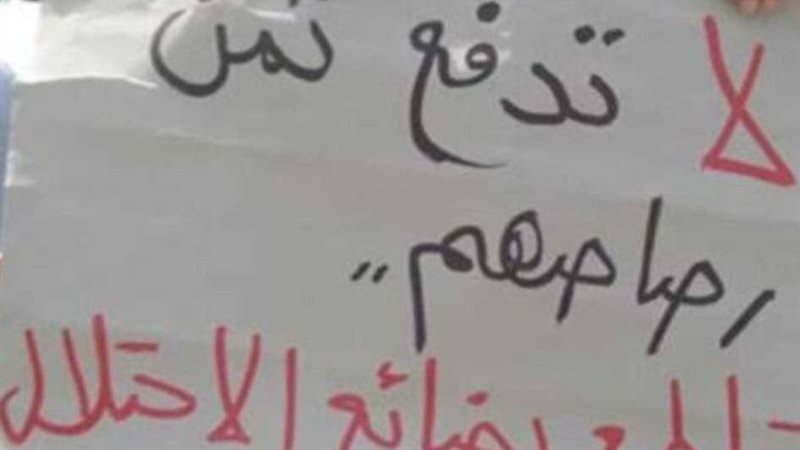 لا تدفع ثمن
رصاصهم ,,
بضائع الاحتلال